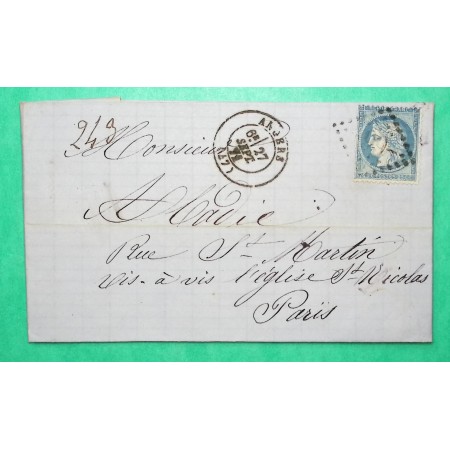 243
Monsieur
ANGERS
6E 27
SEPT.
(47)
A Hadie
Rue St. Martin
vis-à vis l'église St Nicolas
Paris